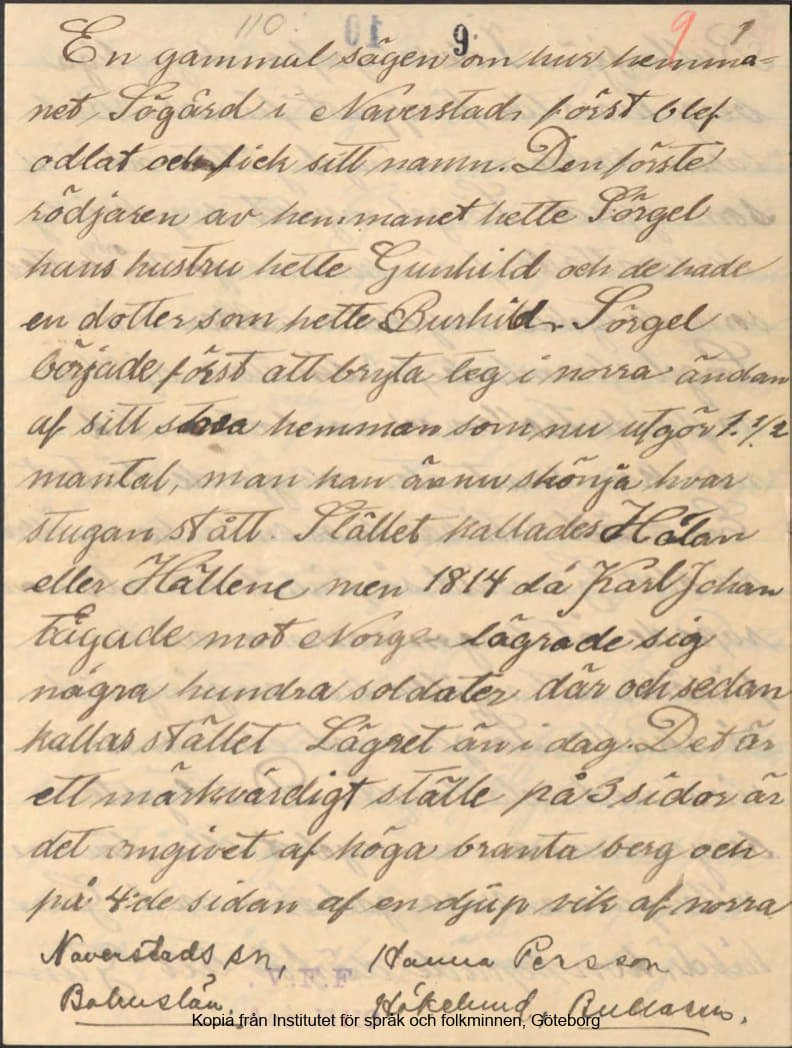 110. 10 9. 9 1
En gammal sägen om hur hemma-
net Sögård i Naverstads först blef
odlat och fick sitt namn. Den förste
rödjaren av hemmanet hette Sörgel
hans hustru hette Gunhild och de hade
en dotter som hette Burhild. Sörgel
började först att bryta leg i norra ändan
af sitt stora hemman som nu utgör 1. 1/2
mantal, man kan ännu skönja hvar
stugan stått. Stället kallades Hålan
eller Hällene men 1814 då Karl Johan
tågade mot Norge lägrade sig
några hundra soldater där och sedan
kallas stället Lägret än i dag. Det är
ett märkvärdigt ställe på 3 sidor är
det omgivet af höga branta berg och
på 4de sidan af en djup vik af norra
Naverstads sn, Hanna Persson
Bohuslän. V.F.F Håkelund, Bullaren.
Kopia från Institutet för språk och folkminnen, Göteborg